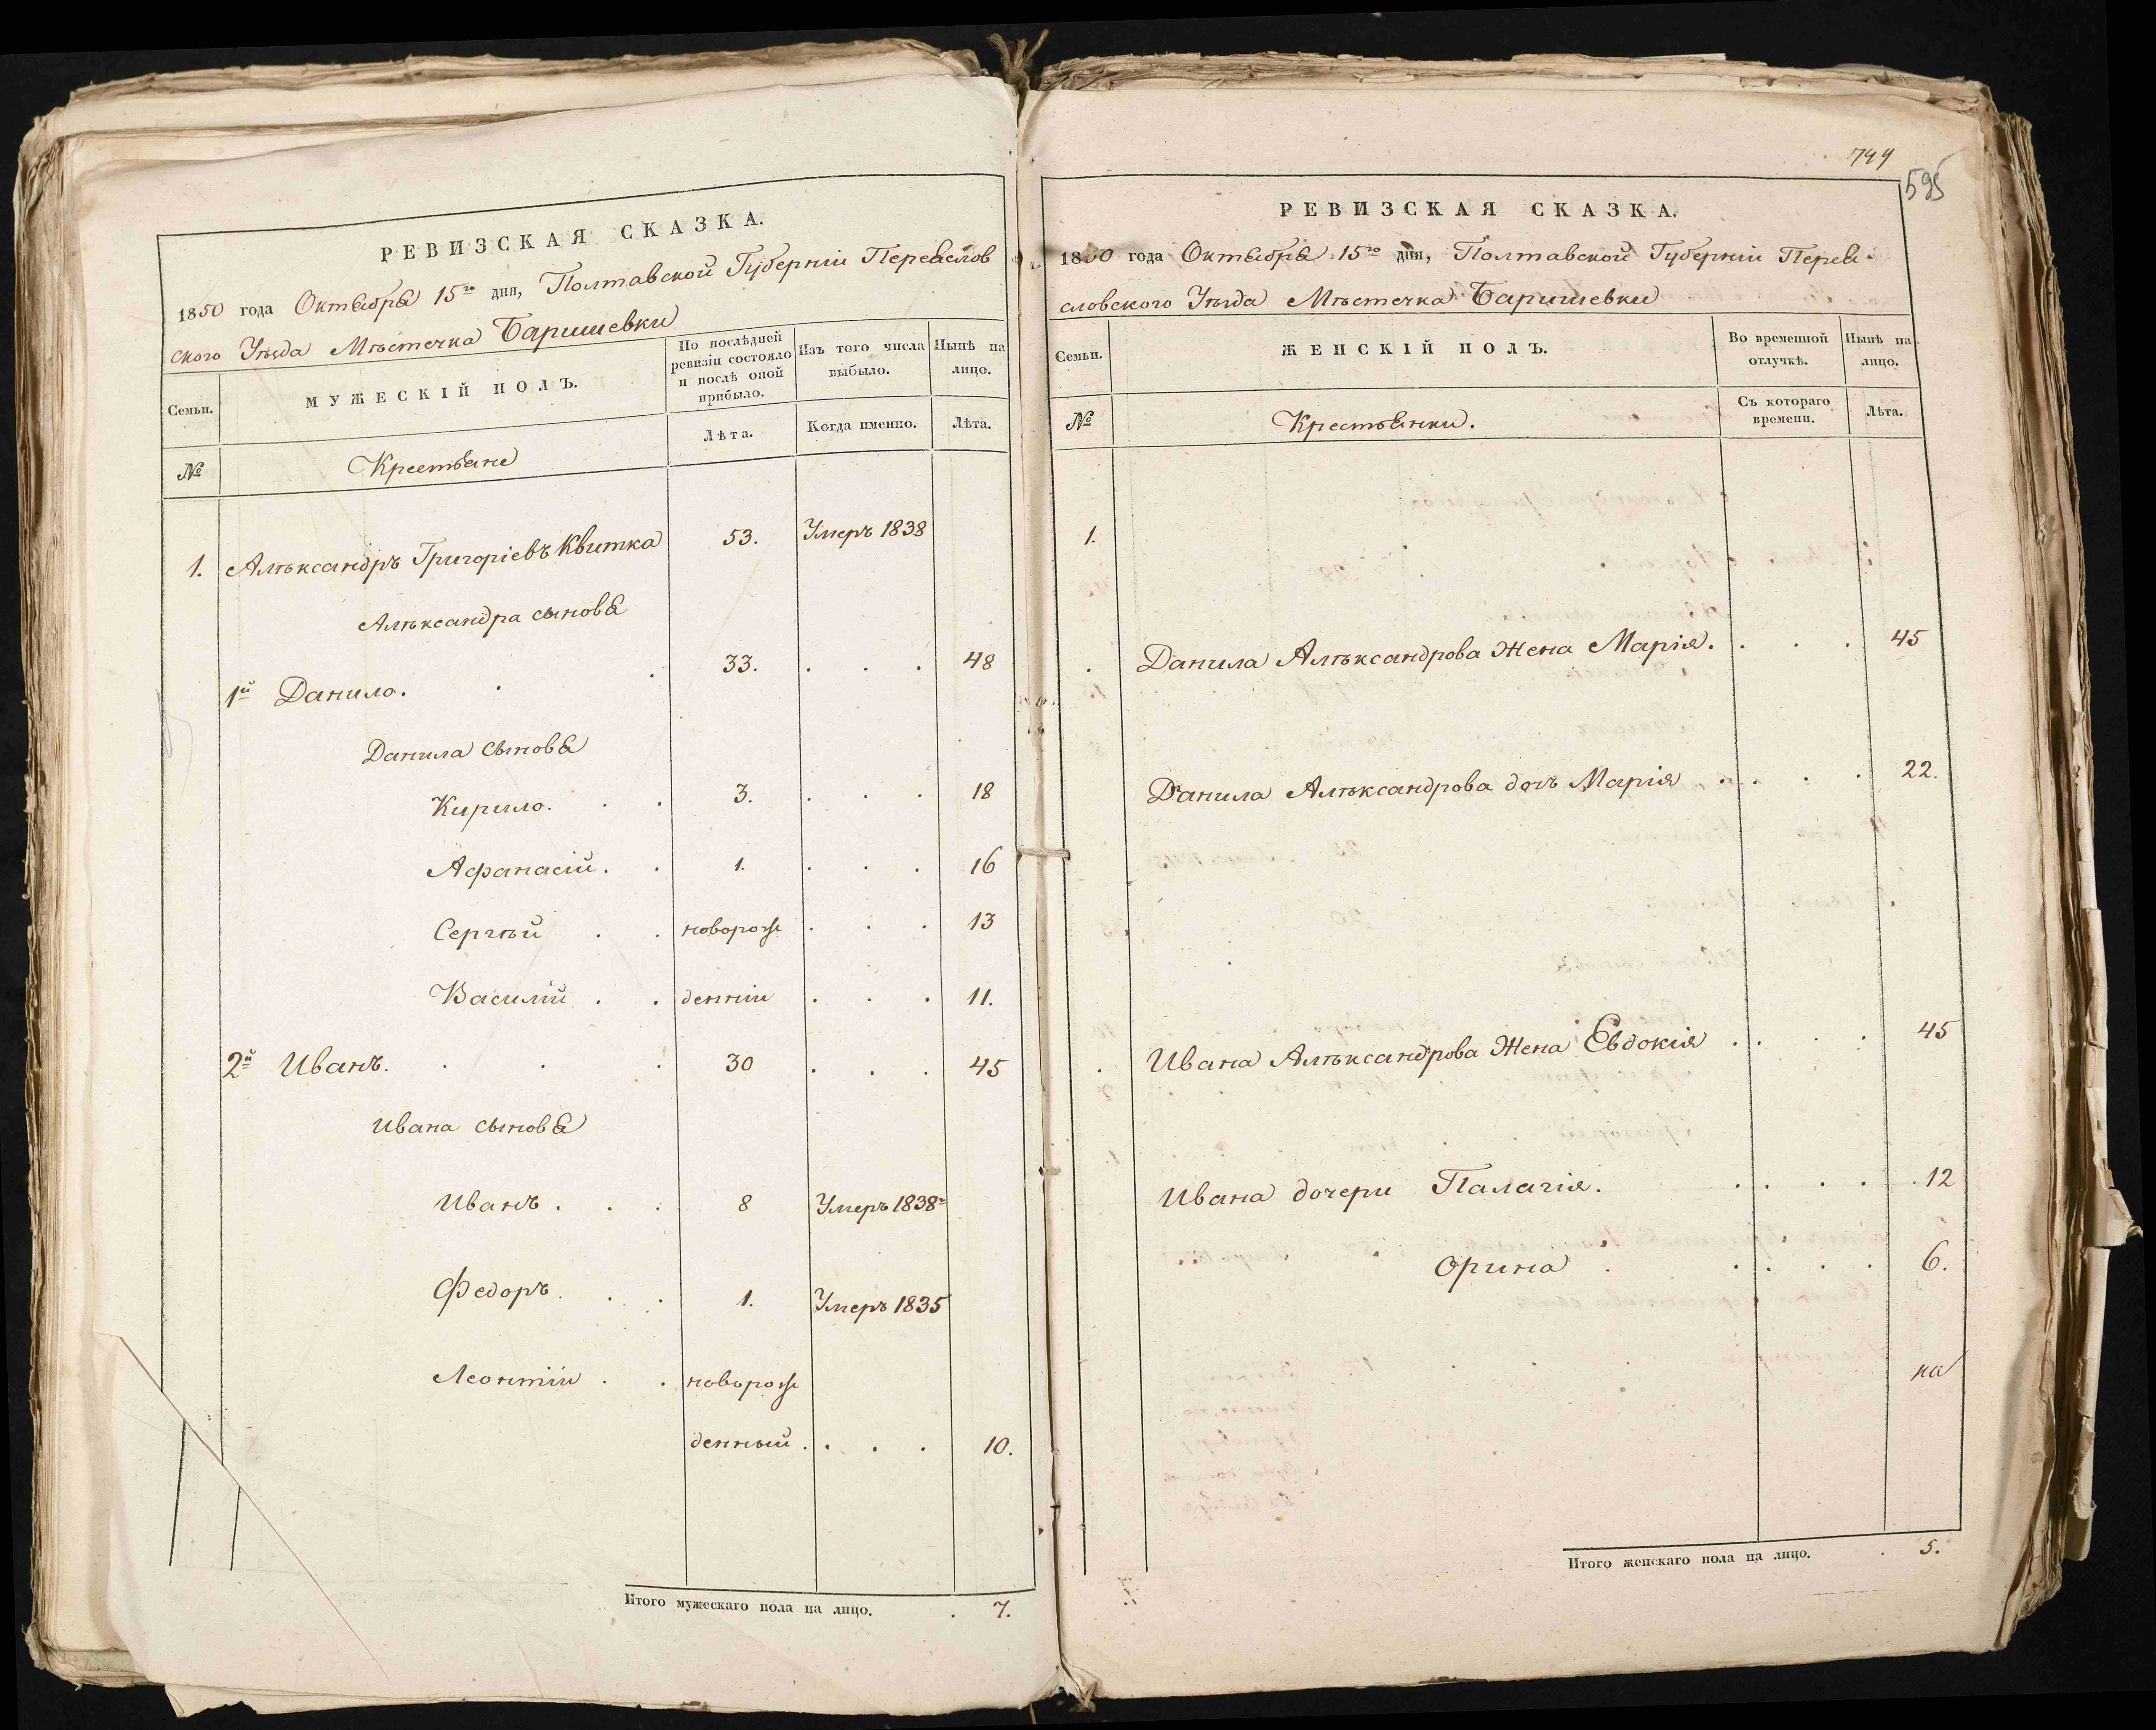 РЕВИЗСКАЯ СКАЗКА.
1850 года Октября 15го дня, Полтавской Губерніи Переяслов
ского Уѣзда Мѣстечка Баришевки
Семьи.
МУЖЕСКІЙ ПОЛЪ.
По послѣдней ревизіи состояло и послѣ оной прибыло.
Изъ того числа выбыло.
Нынѣ на лицо.
№
Крестьяне
Лѣта.
Когда именно.
Лѣта.
1. Алѣксандръ Григоріевъ Квитка 53. Умеръ 1838
Алѣксандра сыновя
1й Данило. 33. 48
Данила сыновя
Кирило. 3. 18
Афанасій. 1. 16
Сергѣй новорож 13
Василий денніи 11.
2й Иванъ. 30 45
Ивана сыновя
Иванъ. 8 Умеръ 1838г
Федоръ. 1. Умеръ 1835
Леонтіи новорож
денный. 10.
Итого мужескаго пола на лицо. 7.
799
595
РЕВИЗСКАЯ СКАЗКА.
1850 года Октября 15го дня, Полтавской Губерніи Перея-
словского Уѣзда Мѣстечка Баришевки
Семьи.
ЖЕНСКІЙ ПОЛЪ.
Во временной отлучкѣ.
Нынѣ на лицо.
№
Крестьянки.
Съ котораго времени.
Лѣта.
1.
Данила Алѣксандрова Жена Марія. 45
Данила Алѣксандрова дочъ Марія 22.
Ивана Алѣксандрова Жена Евдокія 45
Ивана дочери Палагія. 12
Орина 6.
на
Итого женскаго пола на лицо. 5.